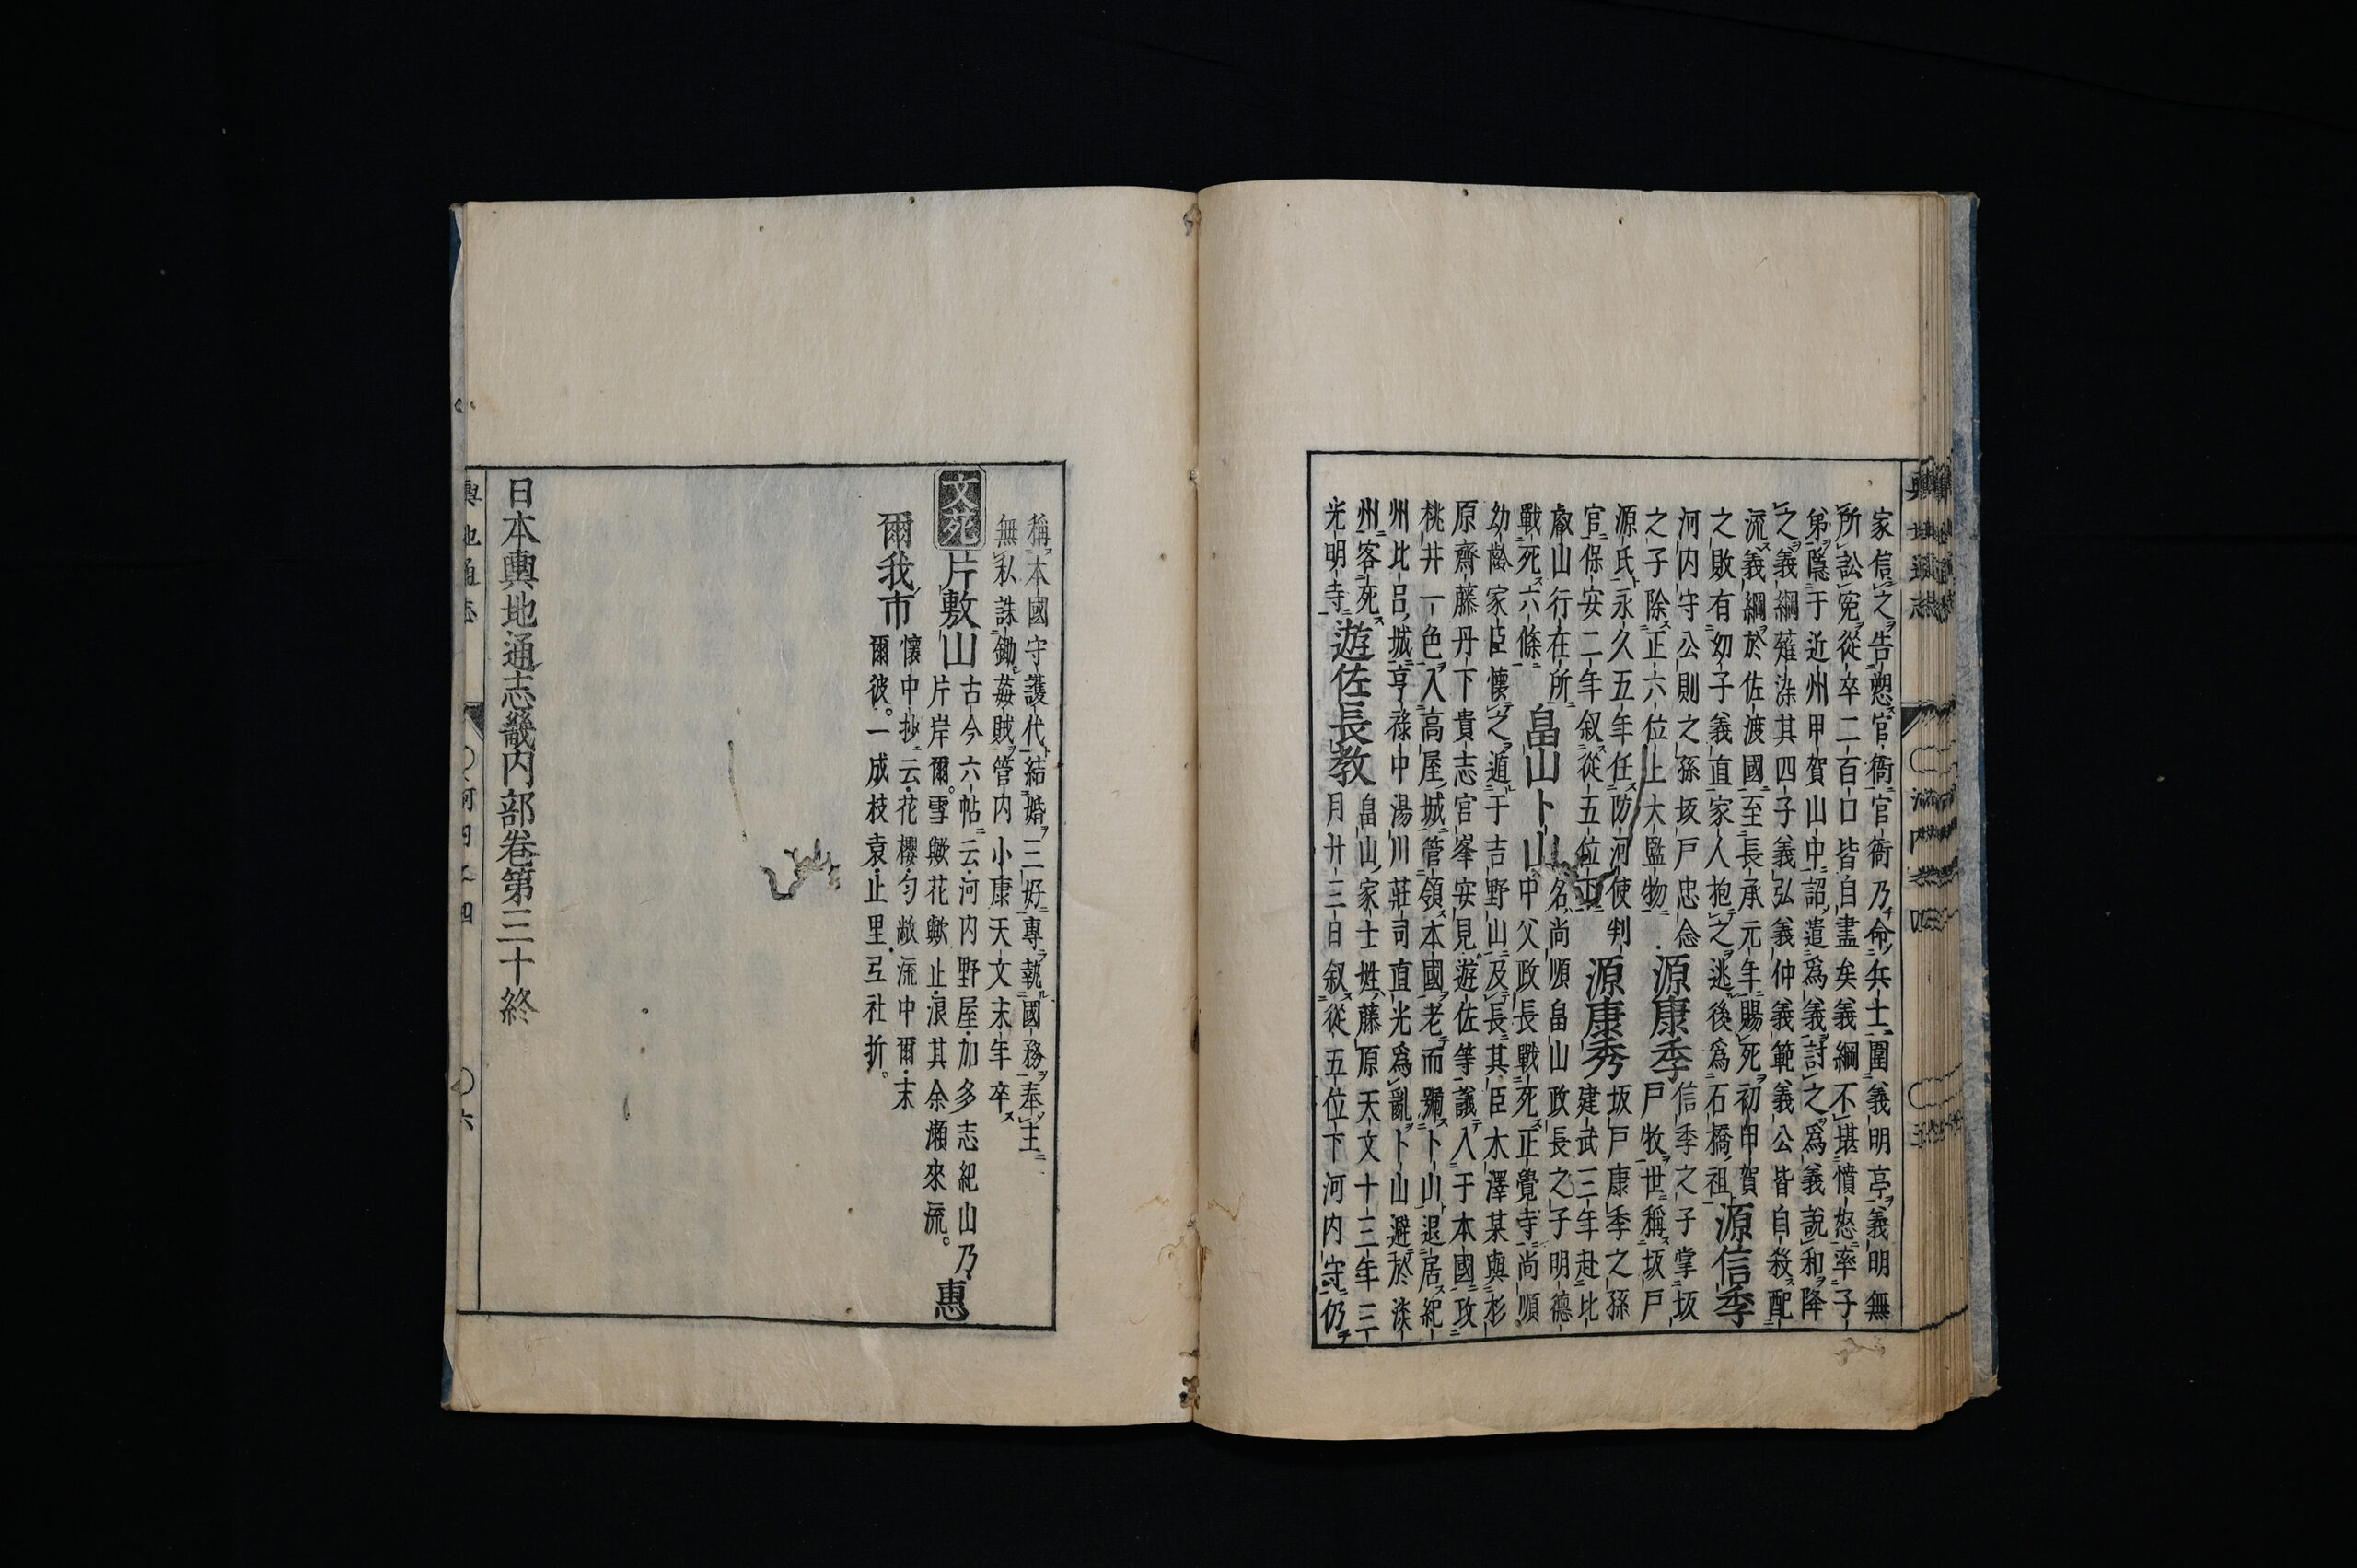 家信之告愬官衙官衙乃命兵士圍義明亭義明無
所訟寃從卒二百口皆自盡矣義綱不堪憤怒率子
弟隱于近州甲賀山中詔遣爲義討之爲義說和降
之義綱薙染其四子義弘義仲義範義公皆自殺配
流義綱於佐渡國至長承元年賜死初甲賀
之敗有幼子義直家人抱之逃後爲石橋祖源信季
河内守公則之孫坂戸忠念信季之子掌坂
之子除正六位上大監物源康季戸牧世稱坂戸
源氏永久五年任防河使判坂戸康季之孫
官保安二年叙從五位下源康秀建武三年赴比
叡山行在所畠山卜山名尚順畠山政長之子明德
戰死六條中父政長戰死正覺寺尚順
幼齡家臣懷之遁于吉野山及長其臣木澤某與杉
原齋藤丹下貴志官峯安見遊佐等議入于本國攻
桃井一色入高屋城管領本國老而號卜山退居紀
州比呂城亨祿中湯川莊司直光爲亂卜山避於淡
州客死遊佐長教畠山家士姓藤原天文十三年三
光明寺月廿三日叙從五位下河内守仍
稱本國守護代結婚三好專執國務奉主
無私誅鋤姦賊管内小康天文末年卒
文苑片敷山古今六帖云河内野屋加多志紀山乃
片岸爾雪歟花歟止浪其余瀬來流。惠
爾我市懷中抄云花櫻匀敞流中爾末
爾彼。一成枝袁止里弖社折。
日本輿地通志畿内部卷第三十終